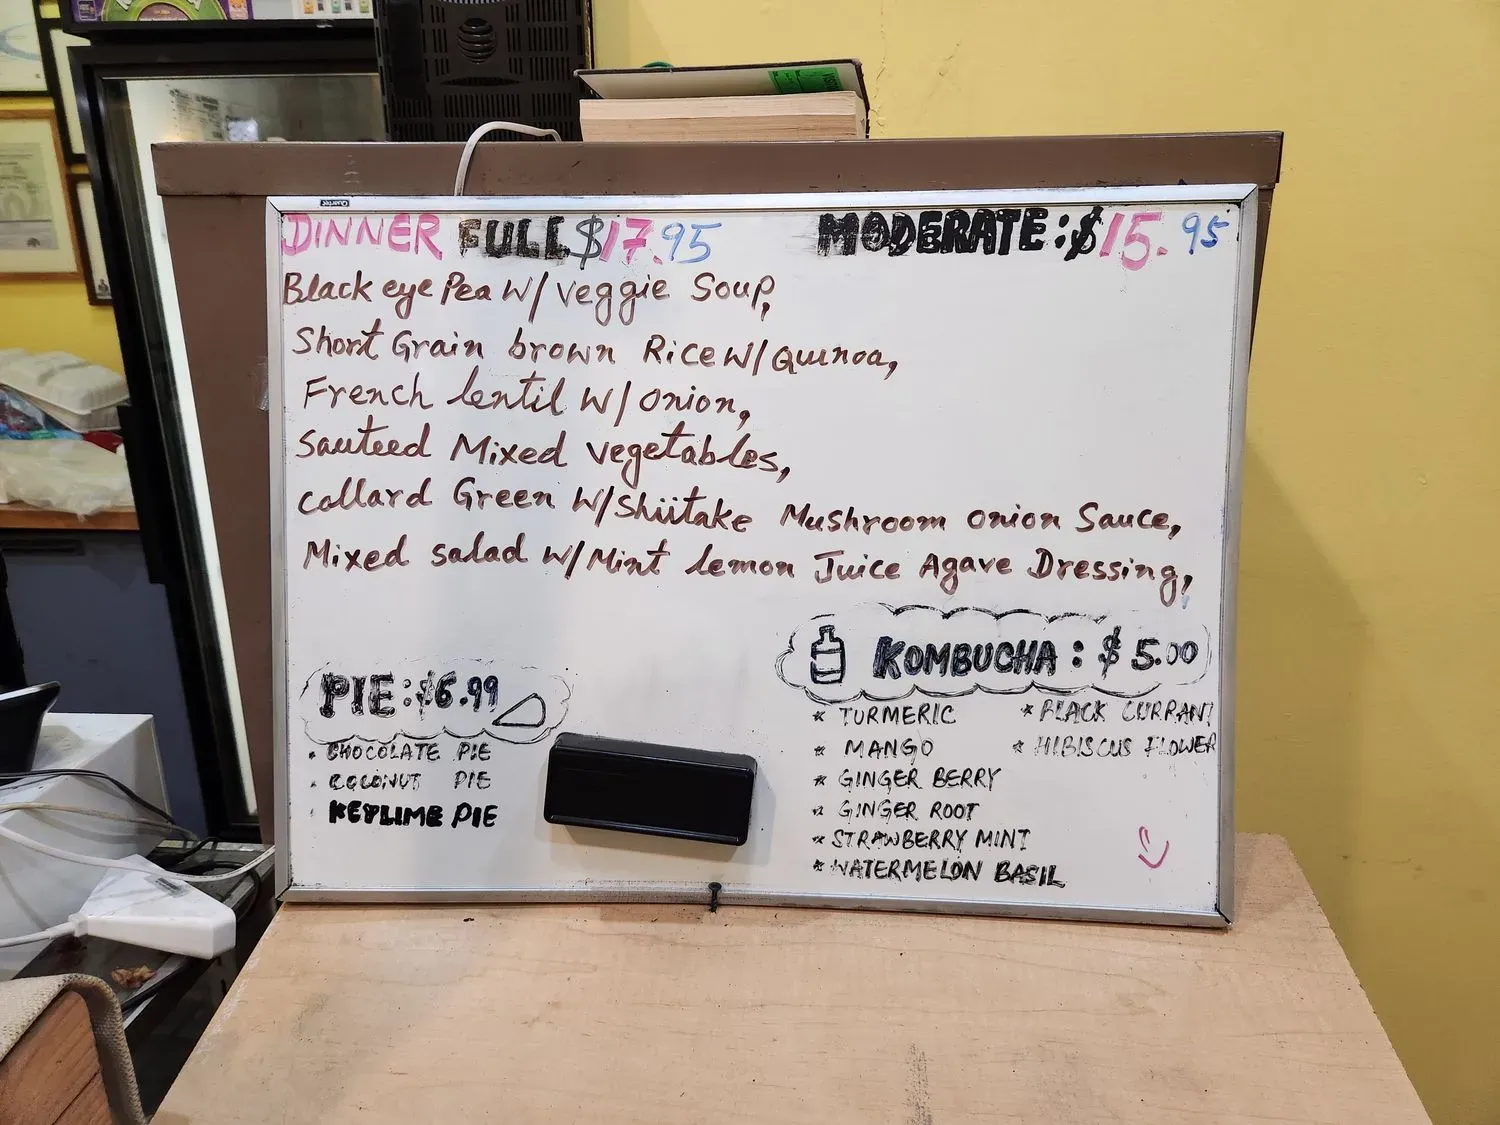 DINNER FULL $17.95 MODERATE: $15.95
Black eye Pea W/ Veggie Soup,
Short Grain brown Rice W/ Quinoa,
French lentil W/ onion,
Sauteed Mixed vegetables,
Collard Green W/ Shiitake Mushroom onion Sauce,
Mixed salad W/ Mint lemon Juice Agave Dressing,
PIE: $6.99
• CHOCOLATE PIE
• COCONUT PIE
• KEYLIME PIE
KOMBUCHA: $5.00
* TURMERIC * BLACK CURRANT
* MANGO * HIBISCUS FLOWER
* GINGER BERRY
* GINGER ROOT
* STRAWBERRY MINT
* WATERMELON BASIL
Quartet